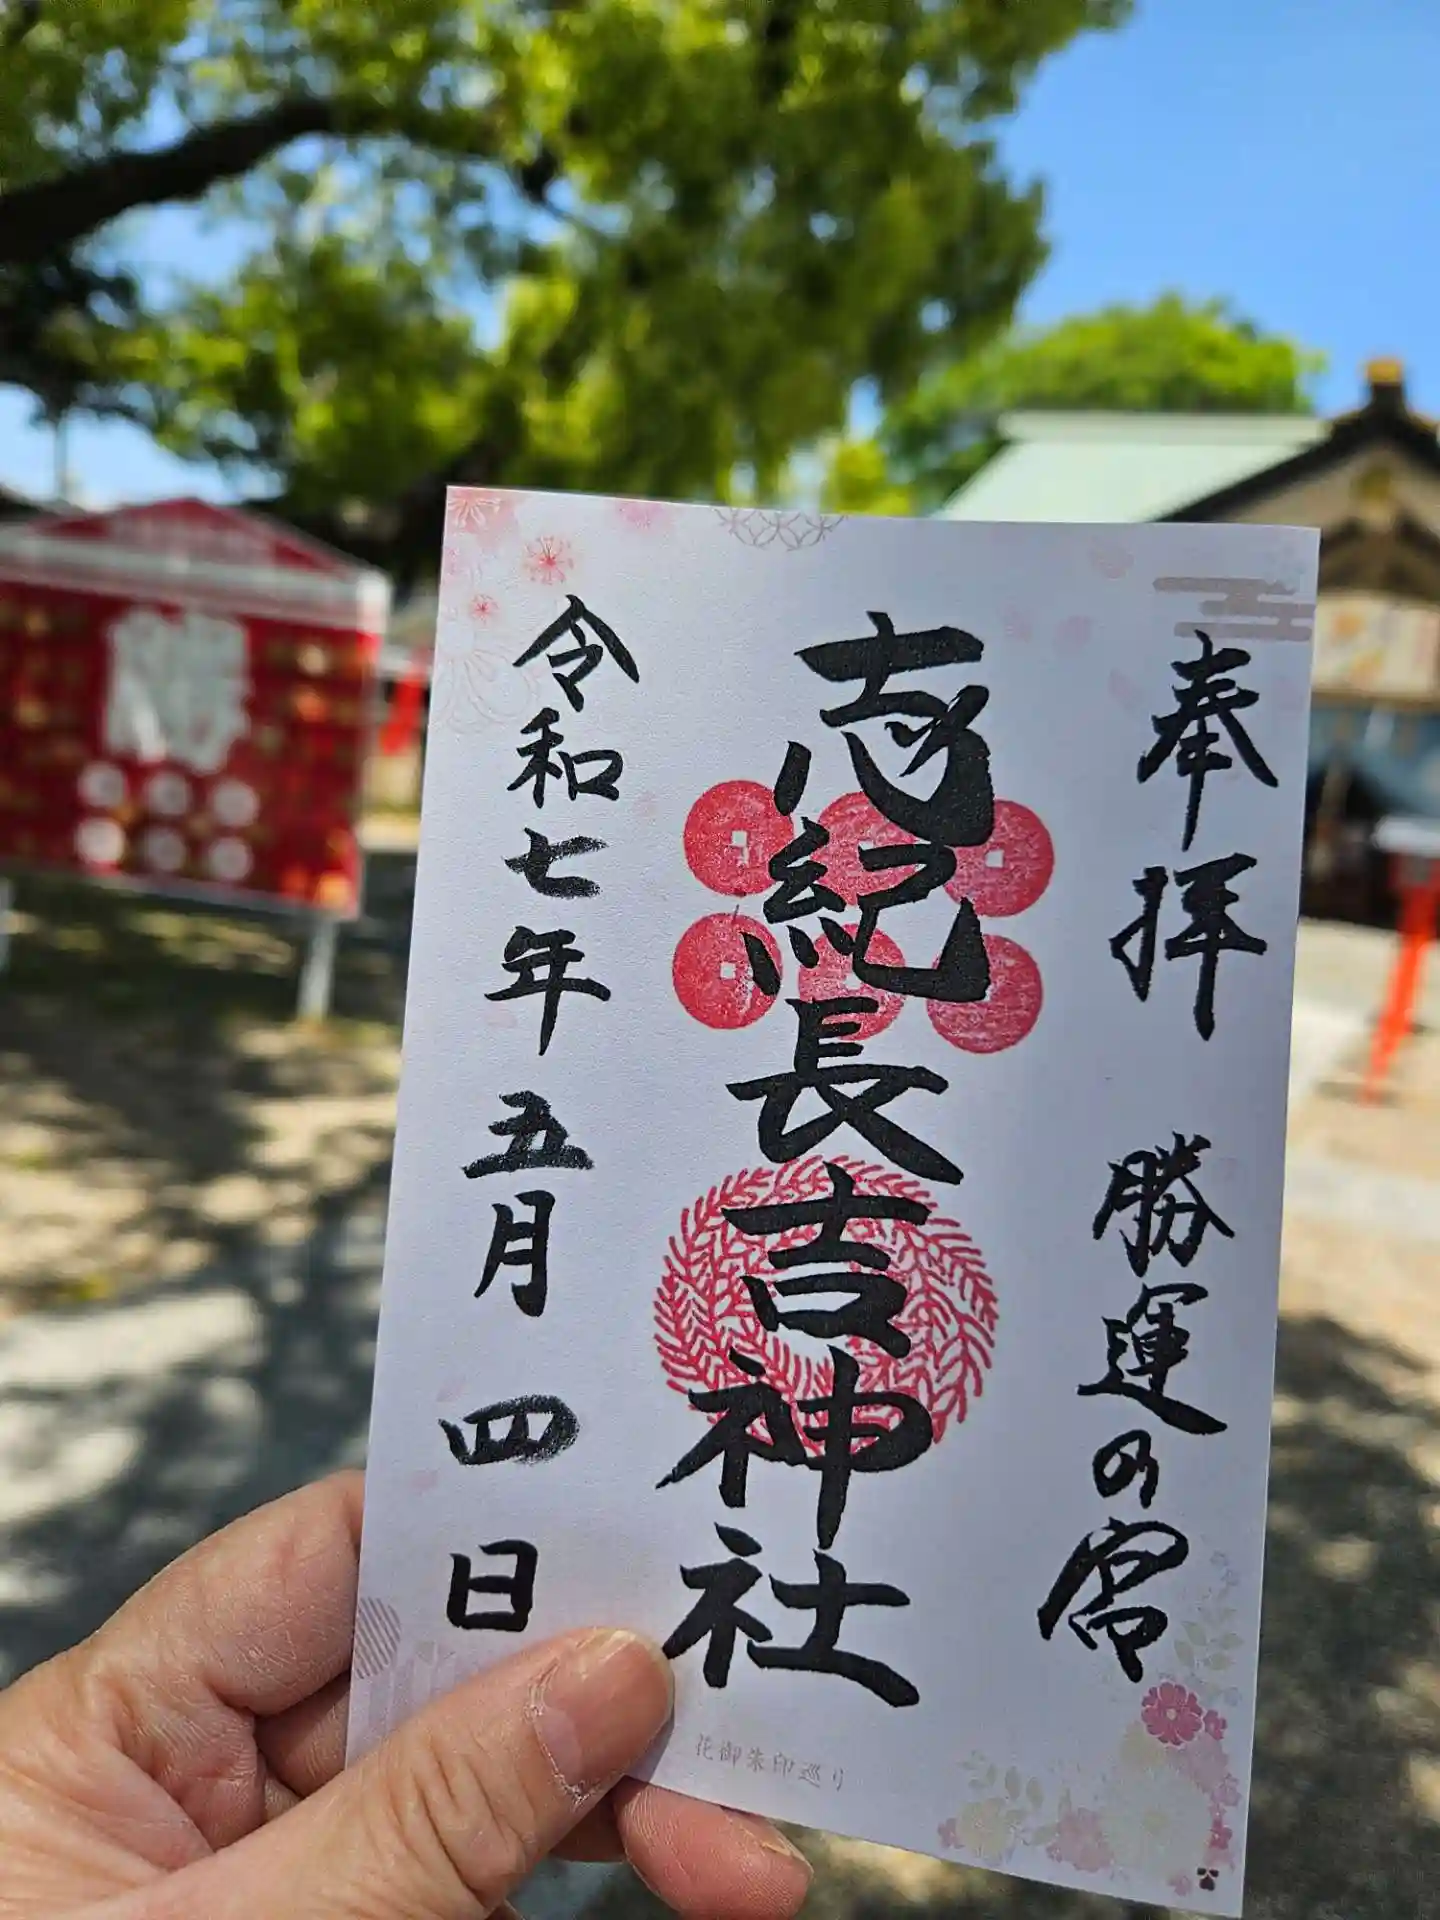 奉拝 勝運の宮
志紀長吉神社
令和七年五月四日
花御朱印巡り